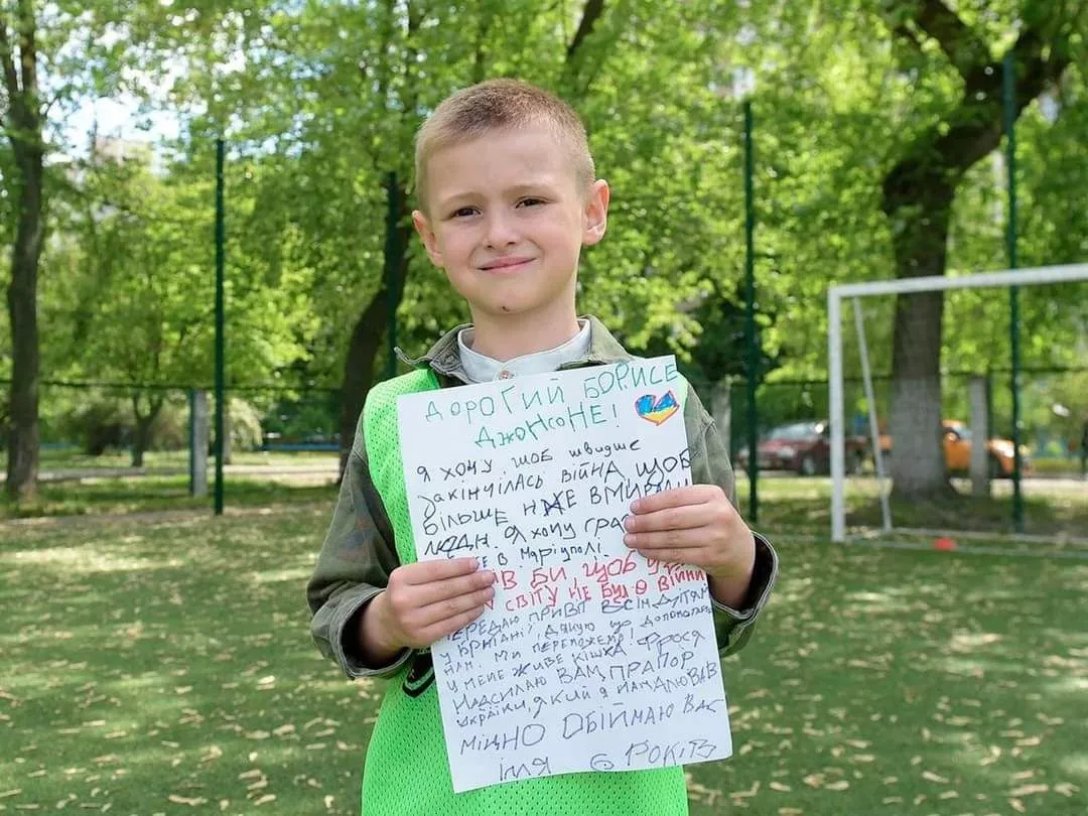 ДОРОГИЙ БОРИСЕ
ДЖОНСОНЕ!
Я ХОЧУ, ЩОБ ШВИДШЕ
ЗАКІНЧИЛАСЬ ВІЙНА ЩОБ
БІЛЬШЕ НЕ ВМИРАЛИ
ЛЮДИ Я ХОЧУ
В МАРІУПОЛІ.
В БИ, ЩОБ
СВІТУ НЕ БУЛО ВІЙНИ
ПЕРЕДАЮ ПРИВІТ ВСІМ ДІТЯМ
У БРИТАНІЇ, ДЯКУЮ ЩО ДОПОМАГАЄТЕ
НАМ. МИ ПЕРЕМОЖЕМО!
У МЕНЕ ЖИВЕ КІШКА ФРОСЯ
НАДСИЛАЮ ВАМ ПРАПОР
УКРАЇНИ, ЯКИЙ Я НАМАЛЮВАВ
МІЦНО ОБІЙМАЮ ВАС
ІЛЛЯ 6 РОКІВ